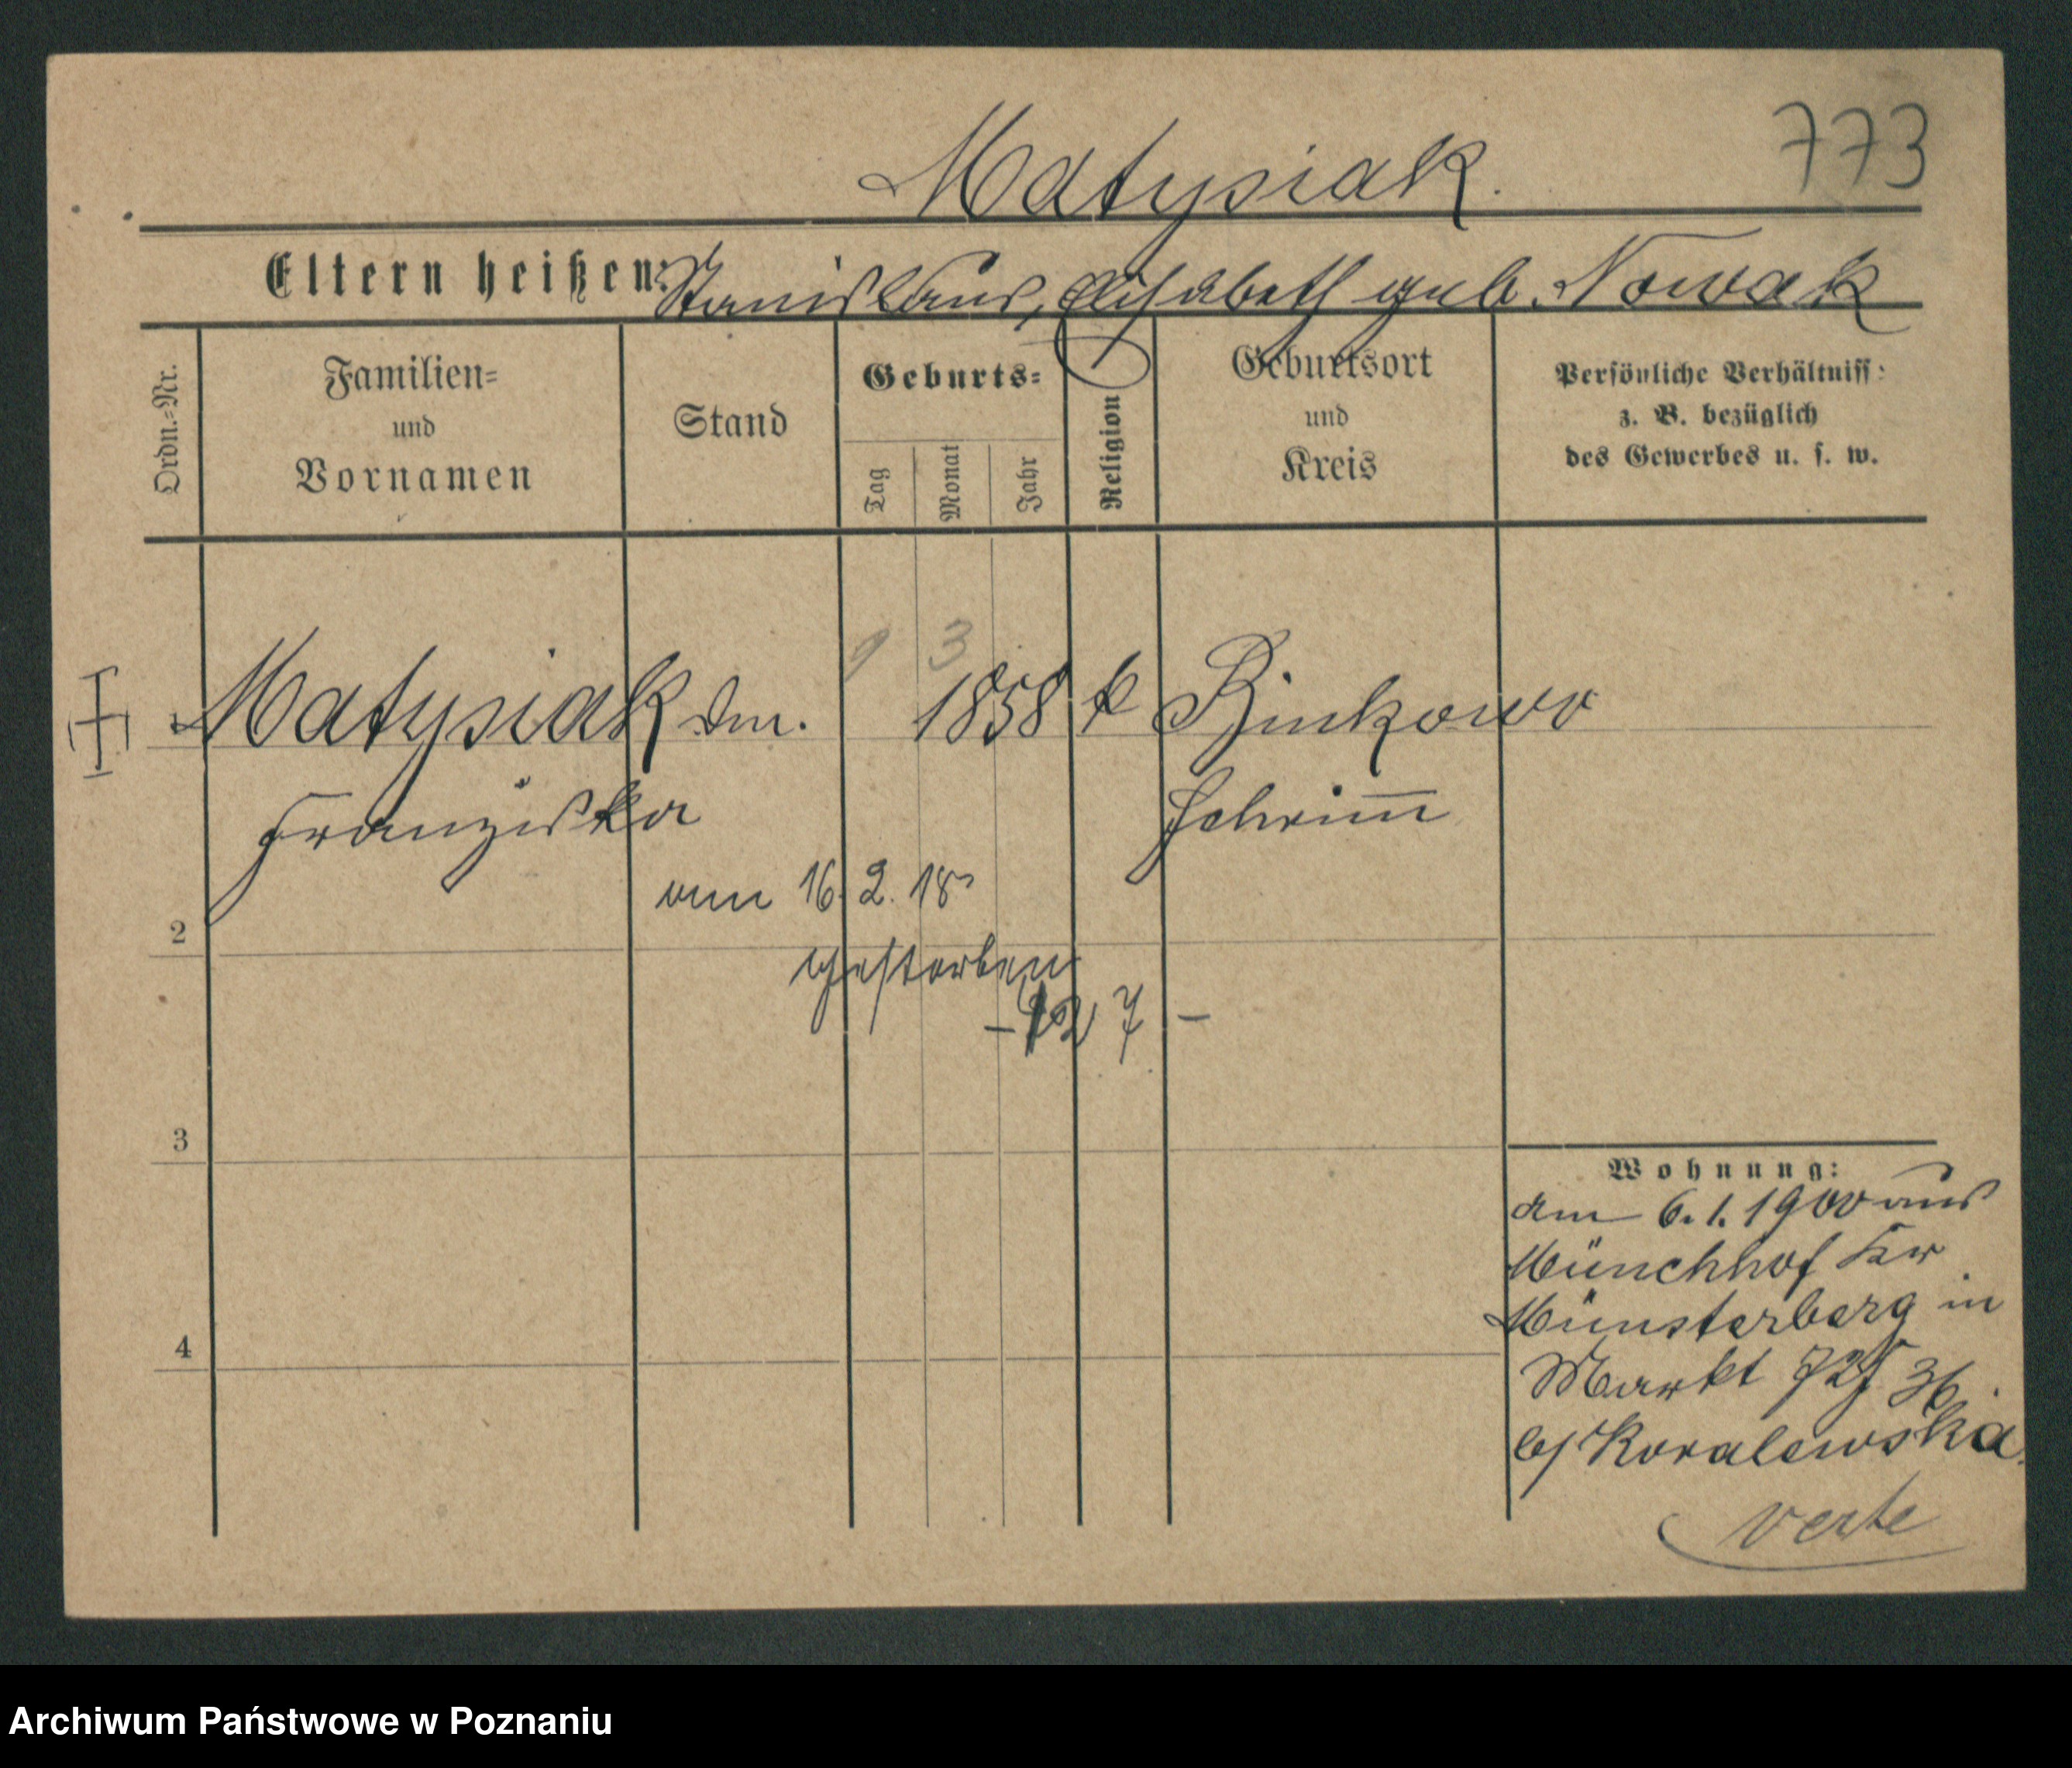 773
Matysiak.
Eltern heißen: Stanislaus, Elisabeth geb. Nowak
Ordn.-Nr.
Familien-
und
Vornamen
Stand
Geburts-
Tag
Monat
Jahr
Religion
Geburtsort
und
Kreis
Persönliche Verhältniss:
z. B. bezüglich
des Gewerbes u. s. w.
9 3
Matysiak 1858 k Binkowo
Franziska Schrim̅
am 16. 2. 18
2
gestorben
- 127 -
3
4
Wohnung:
am 6. 1. 1900 aus
Münchhof Kr
Münsterberg in
Markt 72/ 36.
b/ Koralewska.
verte
Archiwum Państwowe w Poznaniu